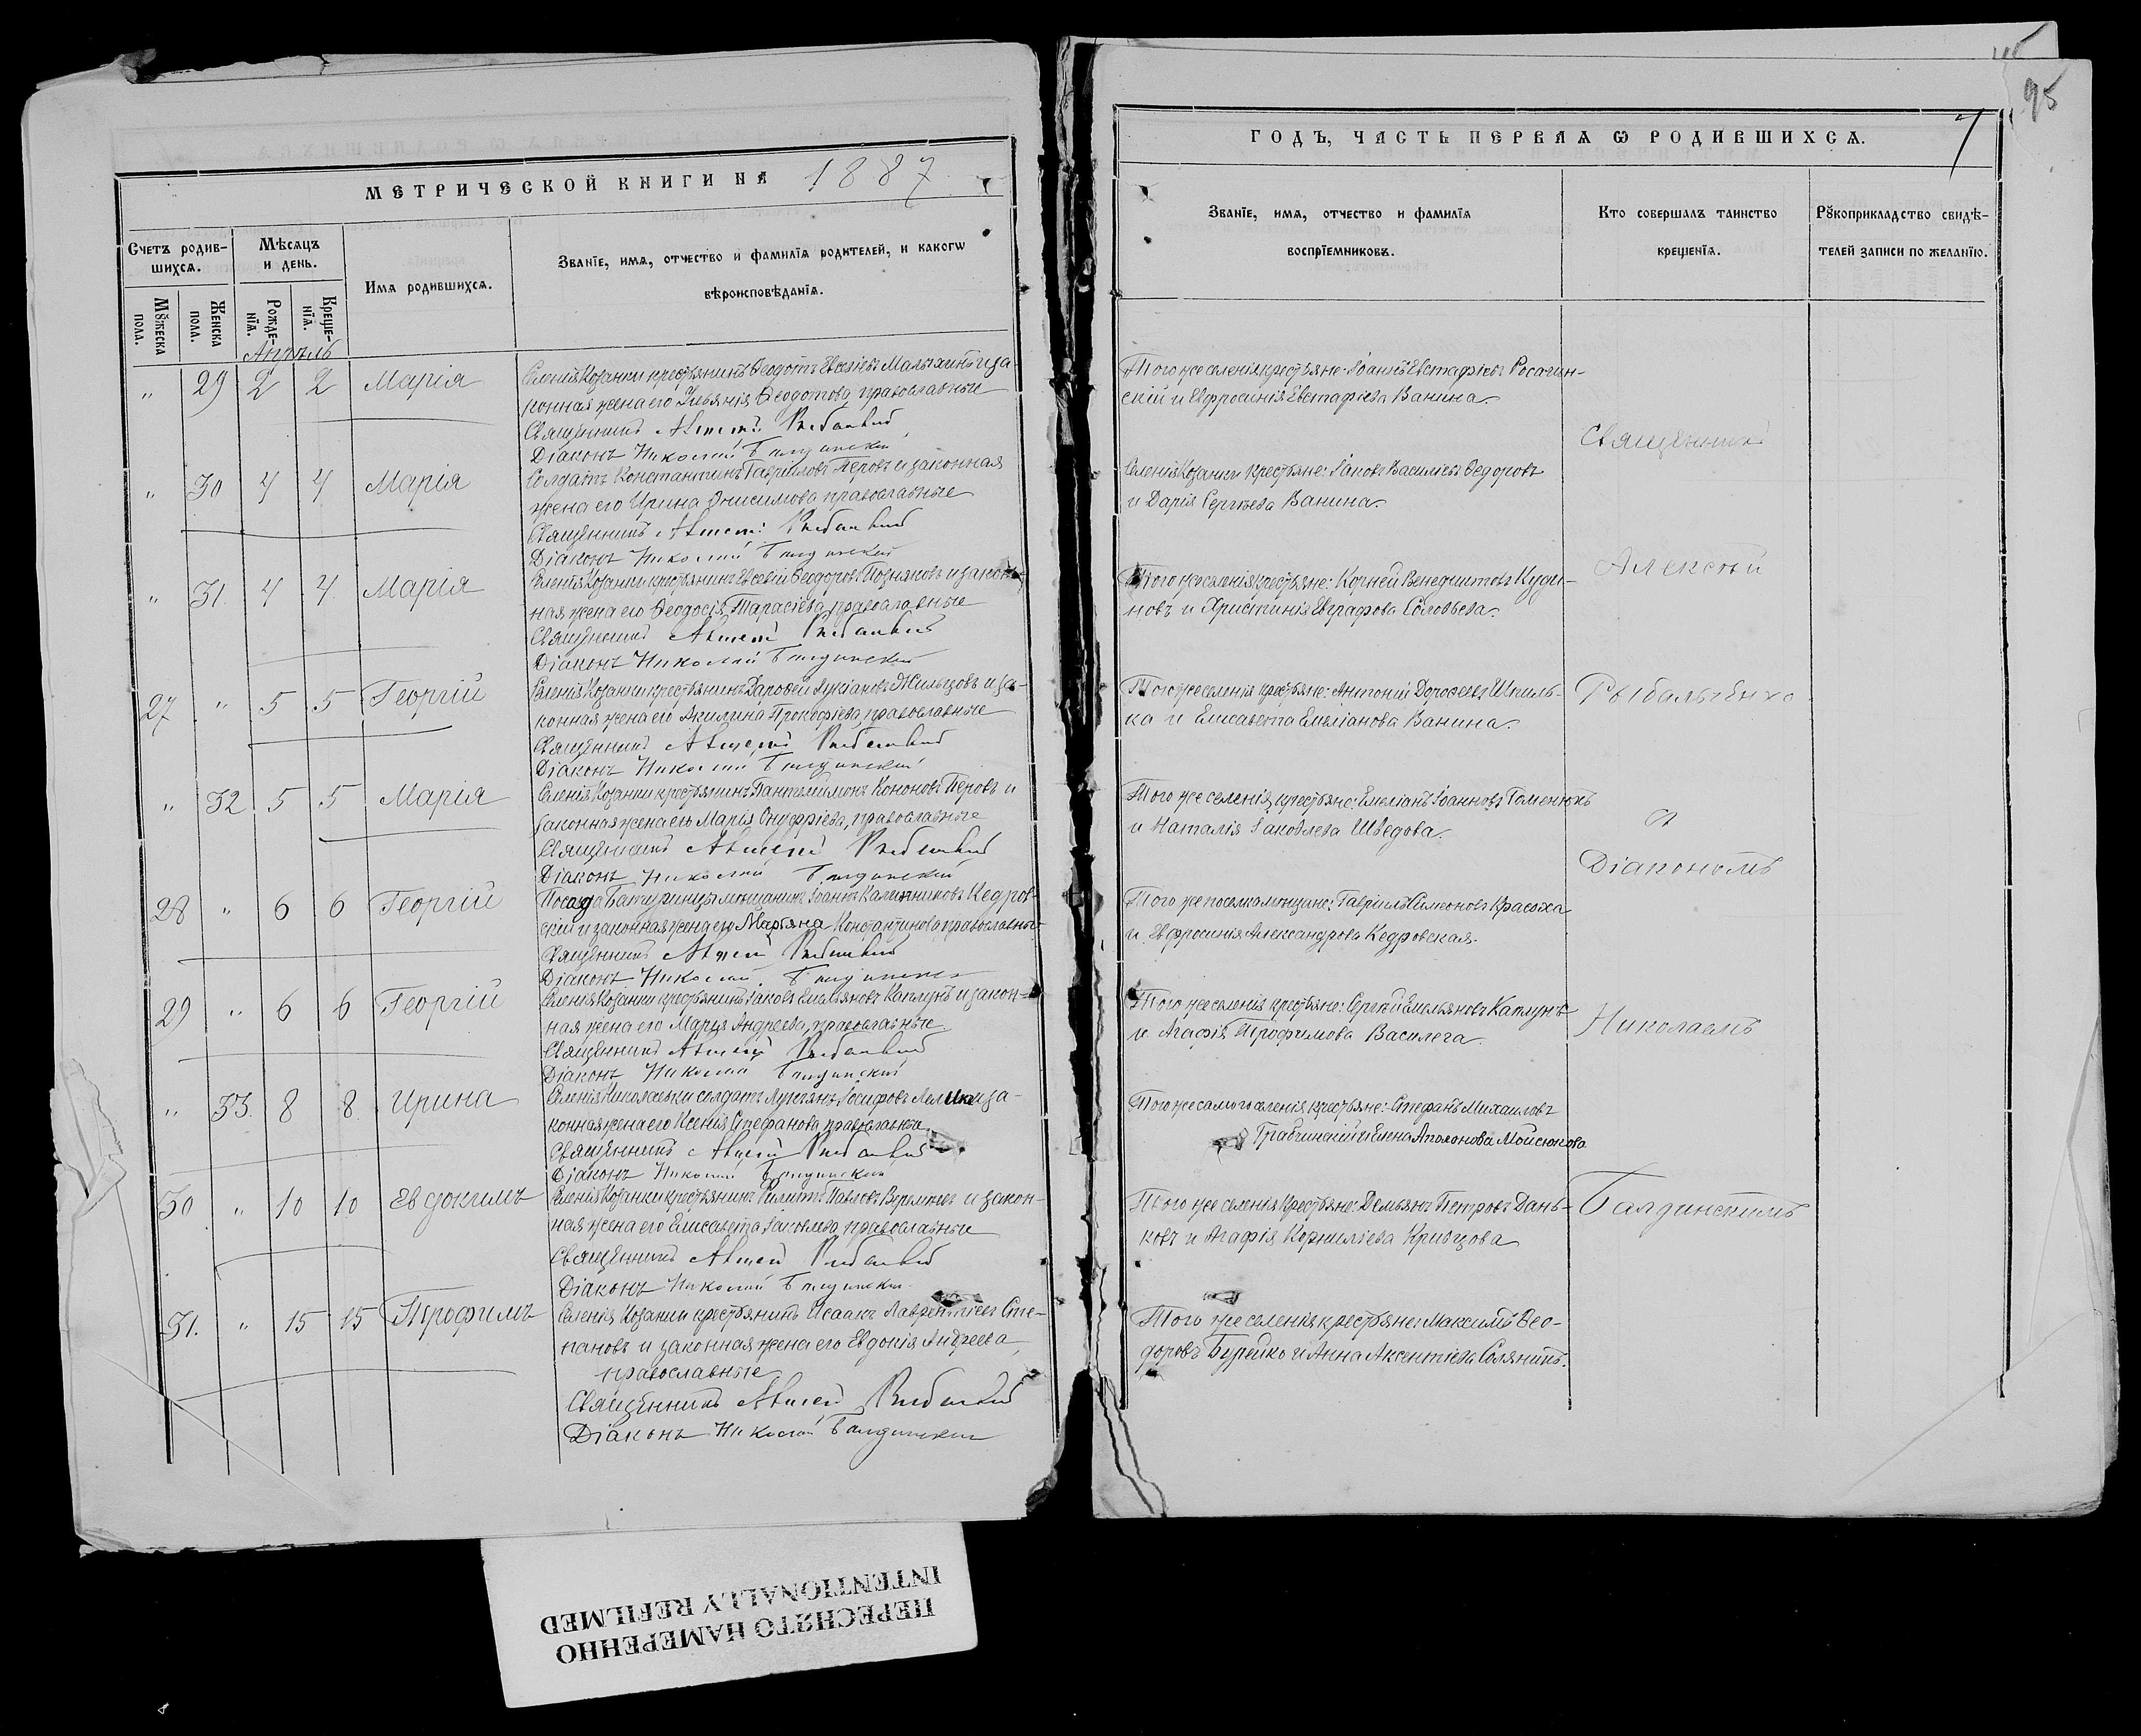 МЕТРИЧЕСКОЙ КНИГИ НА 1887
Счетъ родив-
шихсѧ.
Мѣсѧцъ
и день.
Имѧ родившихсѧ.
Званїе, имѧ, отчество и фамилїѧ родителей, и какогѡ
вѣроисповѣданїѧ.
Мꙋжеска
пола.
Женска
пола.
Рожде-
нїѧ.
Креще-
нїѧ.
Апрѣль
„ 29 2 2 Марія
Селенія Козанки крестьянинъ Ѳеодотъ Евсеіевъ Малыхинъ и за
конная жена его Ѳеодотова, православные
Священникъ Алексѣй
Діаконъ Николай Балдинскій
„ 30 4 4 Марія
Солдатъ Константинъ Гавріиловъ Перовъ и законная
жена его Ирина Онисимова православные
Священникъ Алексѣй
Діаконъ Николай Балдинскій
„ 31. 4 4. Марія
Селенія Козанки крестьянинъ Евсевій Ѳеодоровъ Позняковъ и закон-
ная жена его Ѳеодосія Тарасіева, православные
Священникъ Алексѣй
Діаконъ Николай Балдинскій
27 „ 5 5 Георгій
Селенія Козанки крестьянинъ Дарофей Лукіановъ Жильцовъ и за-
конная жена его Акилина Прокофіева, православные
Священникъ Алексѣй
Діаконъ Николай Балдинскій
„ 32 5 5 Марія
Селенія Козанки крестьянинъ Пантелимонъ Кононовъ Перовъ и
законная жена его Марія Онуфріева, православные
Священникъ Алексѣй
Діаконъ Николай Балдинскій
28 „ 6 6 Георгій
Посада Батуринцы мѣщанинъ Іоаннъ Калинниковъ Кедров-
скій и законная жена его Марьяна Константинова православные
Священникъ Алексѣй
Діаконъ Николай Балдинскій
29 „ 6 6 Георгій
Селенія Козанки крестьянинъ Іаковъ Емельяновъ Каплунъ и закон-
ная жена его Марѳа Андреева, православные
Священникъ Алексѣй
Діаконъ Николай Балдинскій
„ 33. 8 8. Ирина
Селенія Николаевки солдатъ Лукьянъ Іосифовъ и за-
конная жена его Ксенія Стефанова, православные
Священникъ Алексѣй
Діаконъ Николай Балдинскій
30 „ 10 10 Евдокимъ
Селенія Козанки крестьянинъ Филиппъ Павловъ и закон-
ная жена его Елисавета Іаковлева, православные
Священникъ Алексѣй
Діаконъ Николай Балдинскій
31. „ 15 15 Трофимъ
Селенія Козанки крестьянинъ Исаакъ Лаврентіевъ Сте-
пановъ и законная жена его Евдокія Андреева,
православные
Священникъ Алексѣй
Діаконъ Николай Балдинскій
95
7
ГОДЪ, ЧАСТЬ ПЕРВАѦ Ѡ РОДИВШИХСѦ.
Званїе, имѧ, отчество и фамилїѧ
воспрїемниковъ.
Кто совершалъ таинство
крещенїѧ.
Рꙋкоприкладство свидѣ-
телей записи по желанїю.
Того же селенія крестьяне: Іоаннъ Евстафіевъ Росачин-
скій и Евфросинія Евстафіева Ванина.
Священникъ
Селенія Козанки крестьяне: Іаковъ Василіевъ Ѳедоровъ
и Дарія Сергѣева Ванина.
Алексѣй
Того же селенія крестьяне: Корней Венедиктовъ Куди-
новъ и Христинія Евграфова Соловьева.
Того же селенія крестьяне: Антоній Дорофеевъ Шпиль-
ка и Елисавета Емеліанова Ванина.
Рыбальченко
Того же селенія крестьяне: Емеліанъ Іоанновъ Гоменюкъ
и Наталія Іаковлева Шведова.
съ
Діакономъ
Того же поселка мѣщане: Гавріилъ Симеоновъ Красоха
и Евфросинія Александрова Кедровская.
Того же селенія крестьяне: Сергѣй Емельяновъ Каплунъ
и Агафія Трофимова Василега.
Николаемъ
Того же самого селенія крестьяне: Стефанъ Михаиловъ
Грабчинскій и Елена Аполонова Мойсюкова
Того же селенія крестьяне: Демьянъ Петровъ Дань-
ковъ и Агафія Корниліева Кривцова
Балдинскимъ
Того же селенія крестьяне: Максимъ Ѳео-
доровъ Бурейко и Анна Аксентіева Соляникъ.
ПЕРЕСНЯТО НАМЕРЕННО
INTENTIONALLY REFILMED